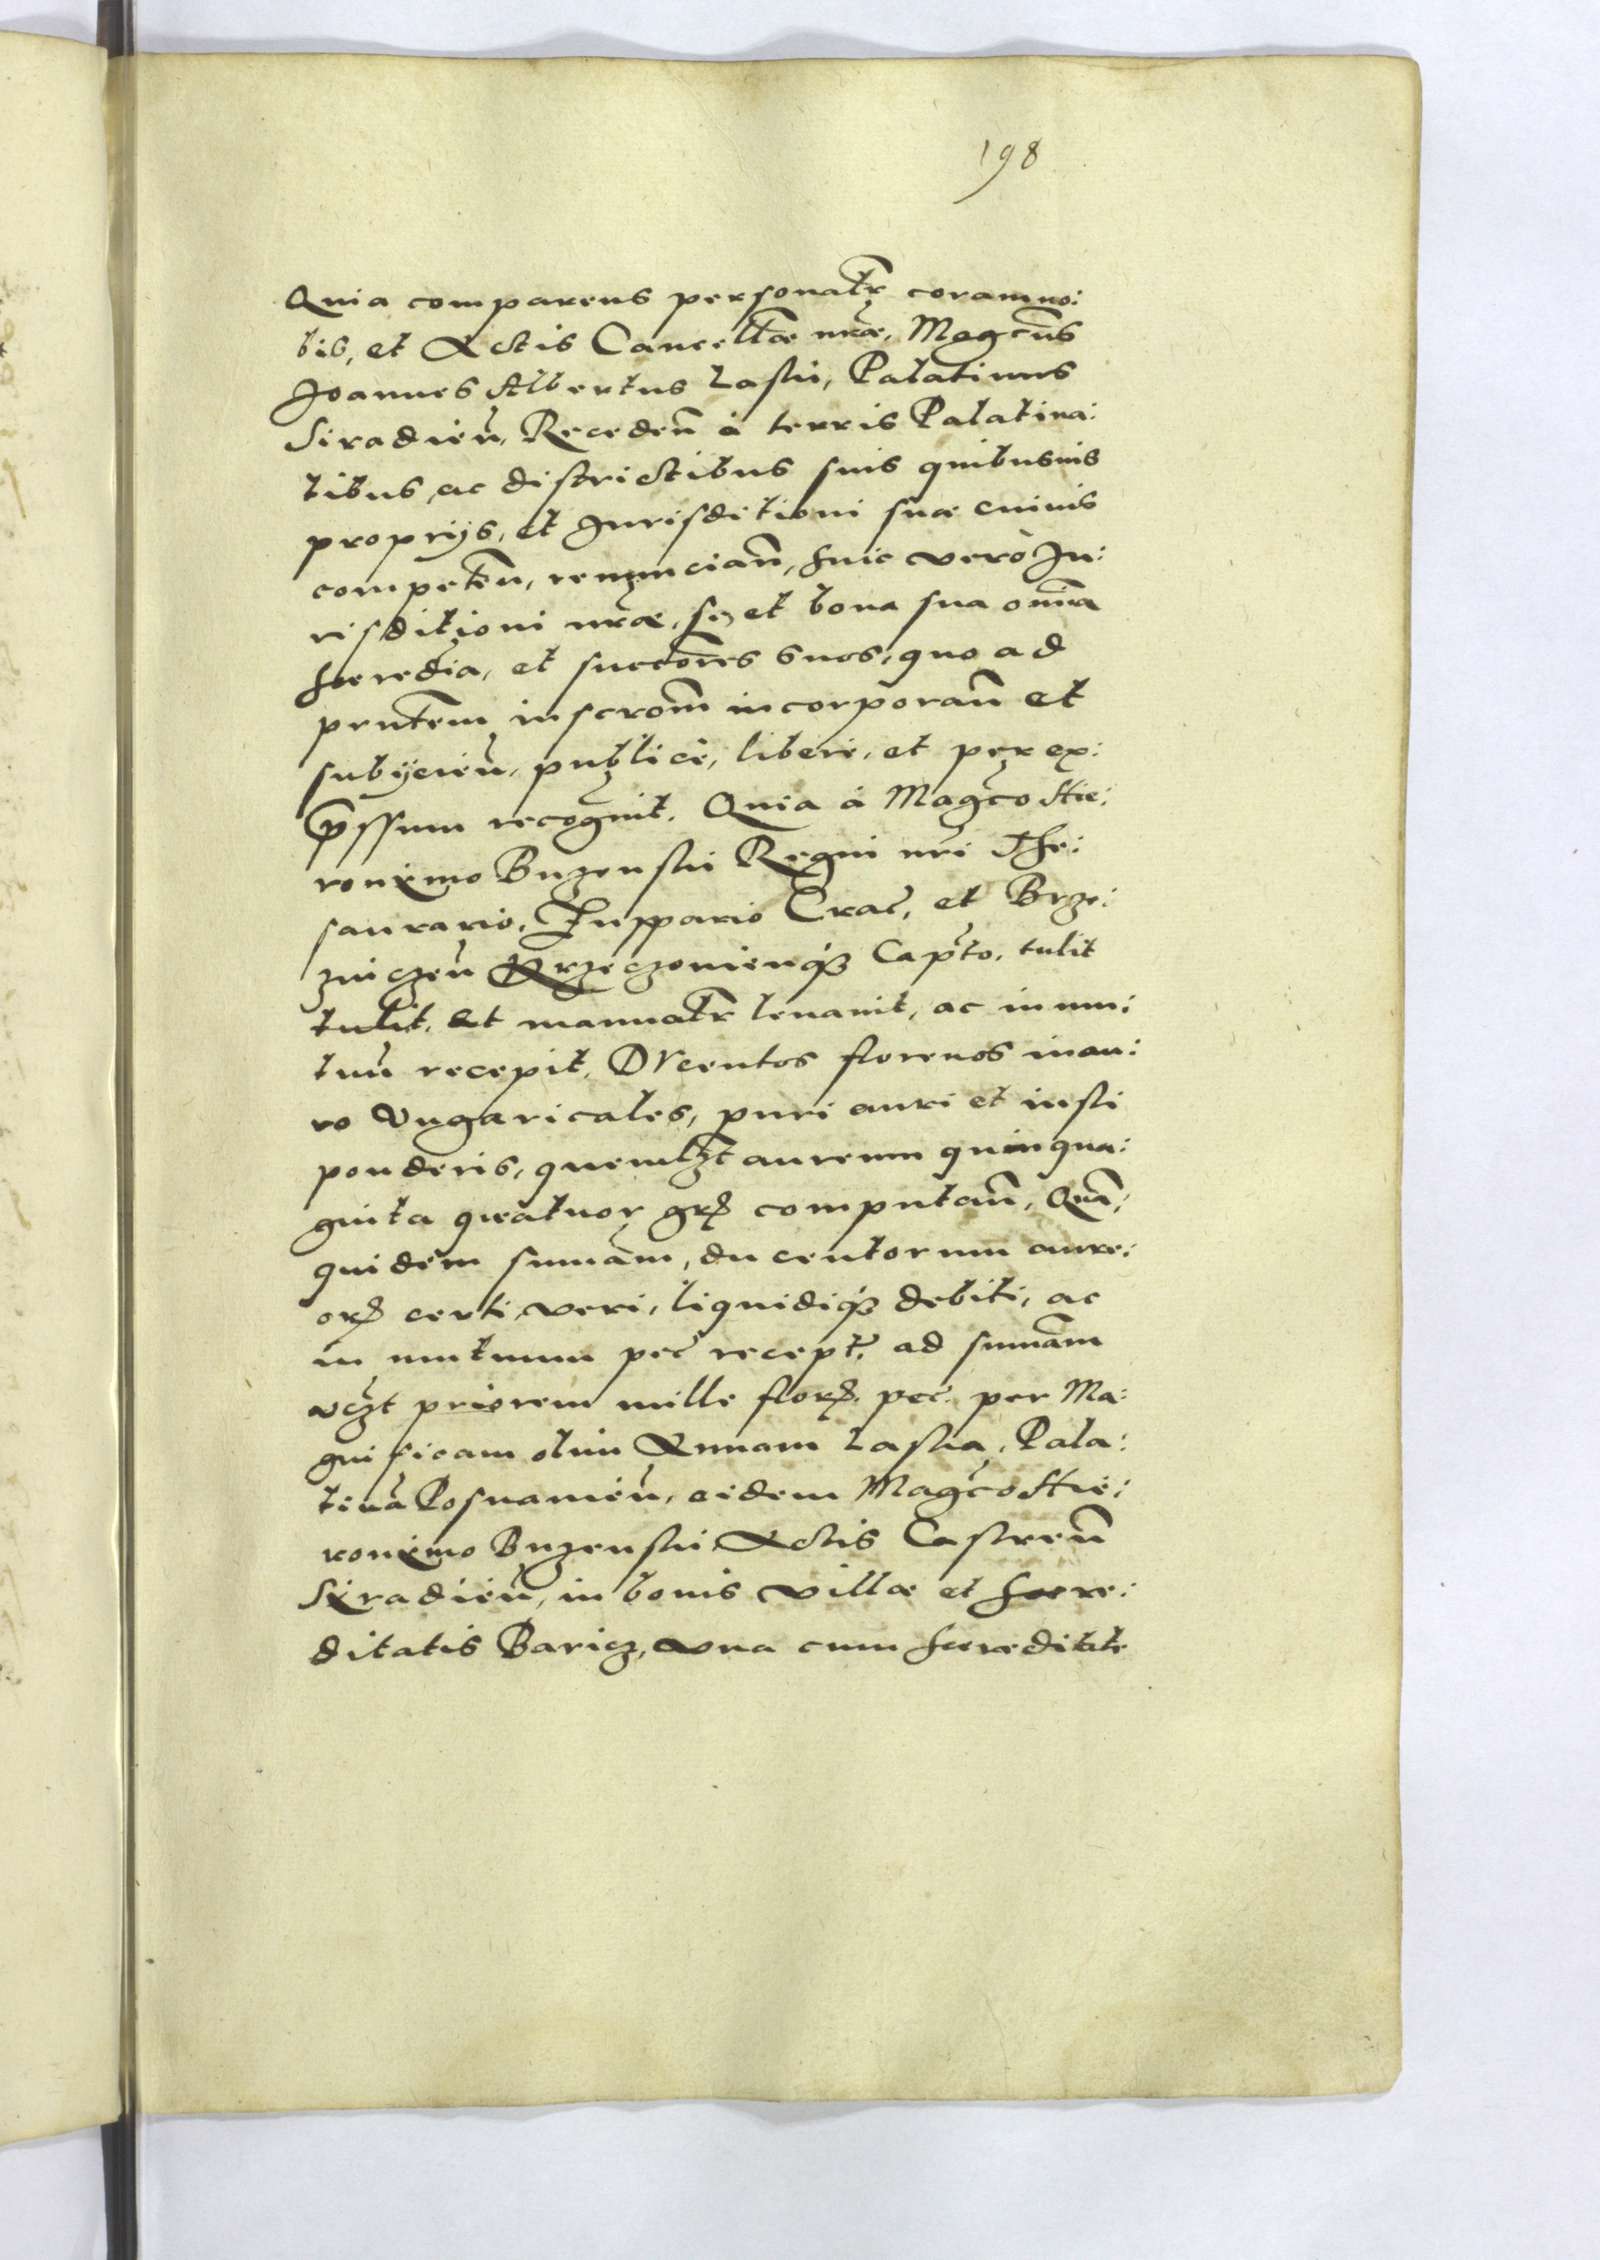 198
Quia comparens personalr̃ coram no:
bis, et Actis Cancellæ nr̃æ, Magcus
Joannes Albertus Laski, Palatinus
Siradien̄, Receden̄ à terris Palatina:
tibus, ac districtibus suis quibusuis
proprijs, et Jurisditioni suæ cuiuis
competen̄, renuncian̄, huic verò Ju:
risditioni nr̃æ, se, et bona sua om̄ia
hæredia, et succores suos, quo ad
prn̄tem inscrom̄ incorporan̄ et
subijcien̄, publicè, liberè, et per ex:
p̄ssum recognuit. Quia à Magco Hie:
ronymo Buzenski Regni nr̃i The:
saurario, Zuppario Crac̄, et Brze:
zniczen̄ Krzeczowienq́ȝ Capto, tulit
tulit, et manualr̃ leuauit, ac in mu:
tuū recepit, DVcentos florenos in au:
ro Vngaricales, puri auri et iusti
ponderis, quemlȝt aureum quinqua:
ginta quatuor gr̃ꝭ computan̄, Quā,
quidem sum̄am, ducentorum aure:
orꝭ certi, veri, liquidiq́ȝ debiti, ac
in mutuum pec̄ recept̄, ad sum̄am
vcȝt priorem mille florꝭ. pec̄. per Ma:
gnificam olim Annam Laska, Pala:
tinā Posnanien̄, eidem Magco Hie:
ronymo Buzenski Actis Castren̄
Siradien̄, in bonis villæ et hære:
ditatis Baricz, vna cum hæreditate